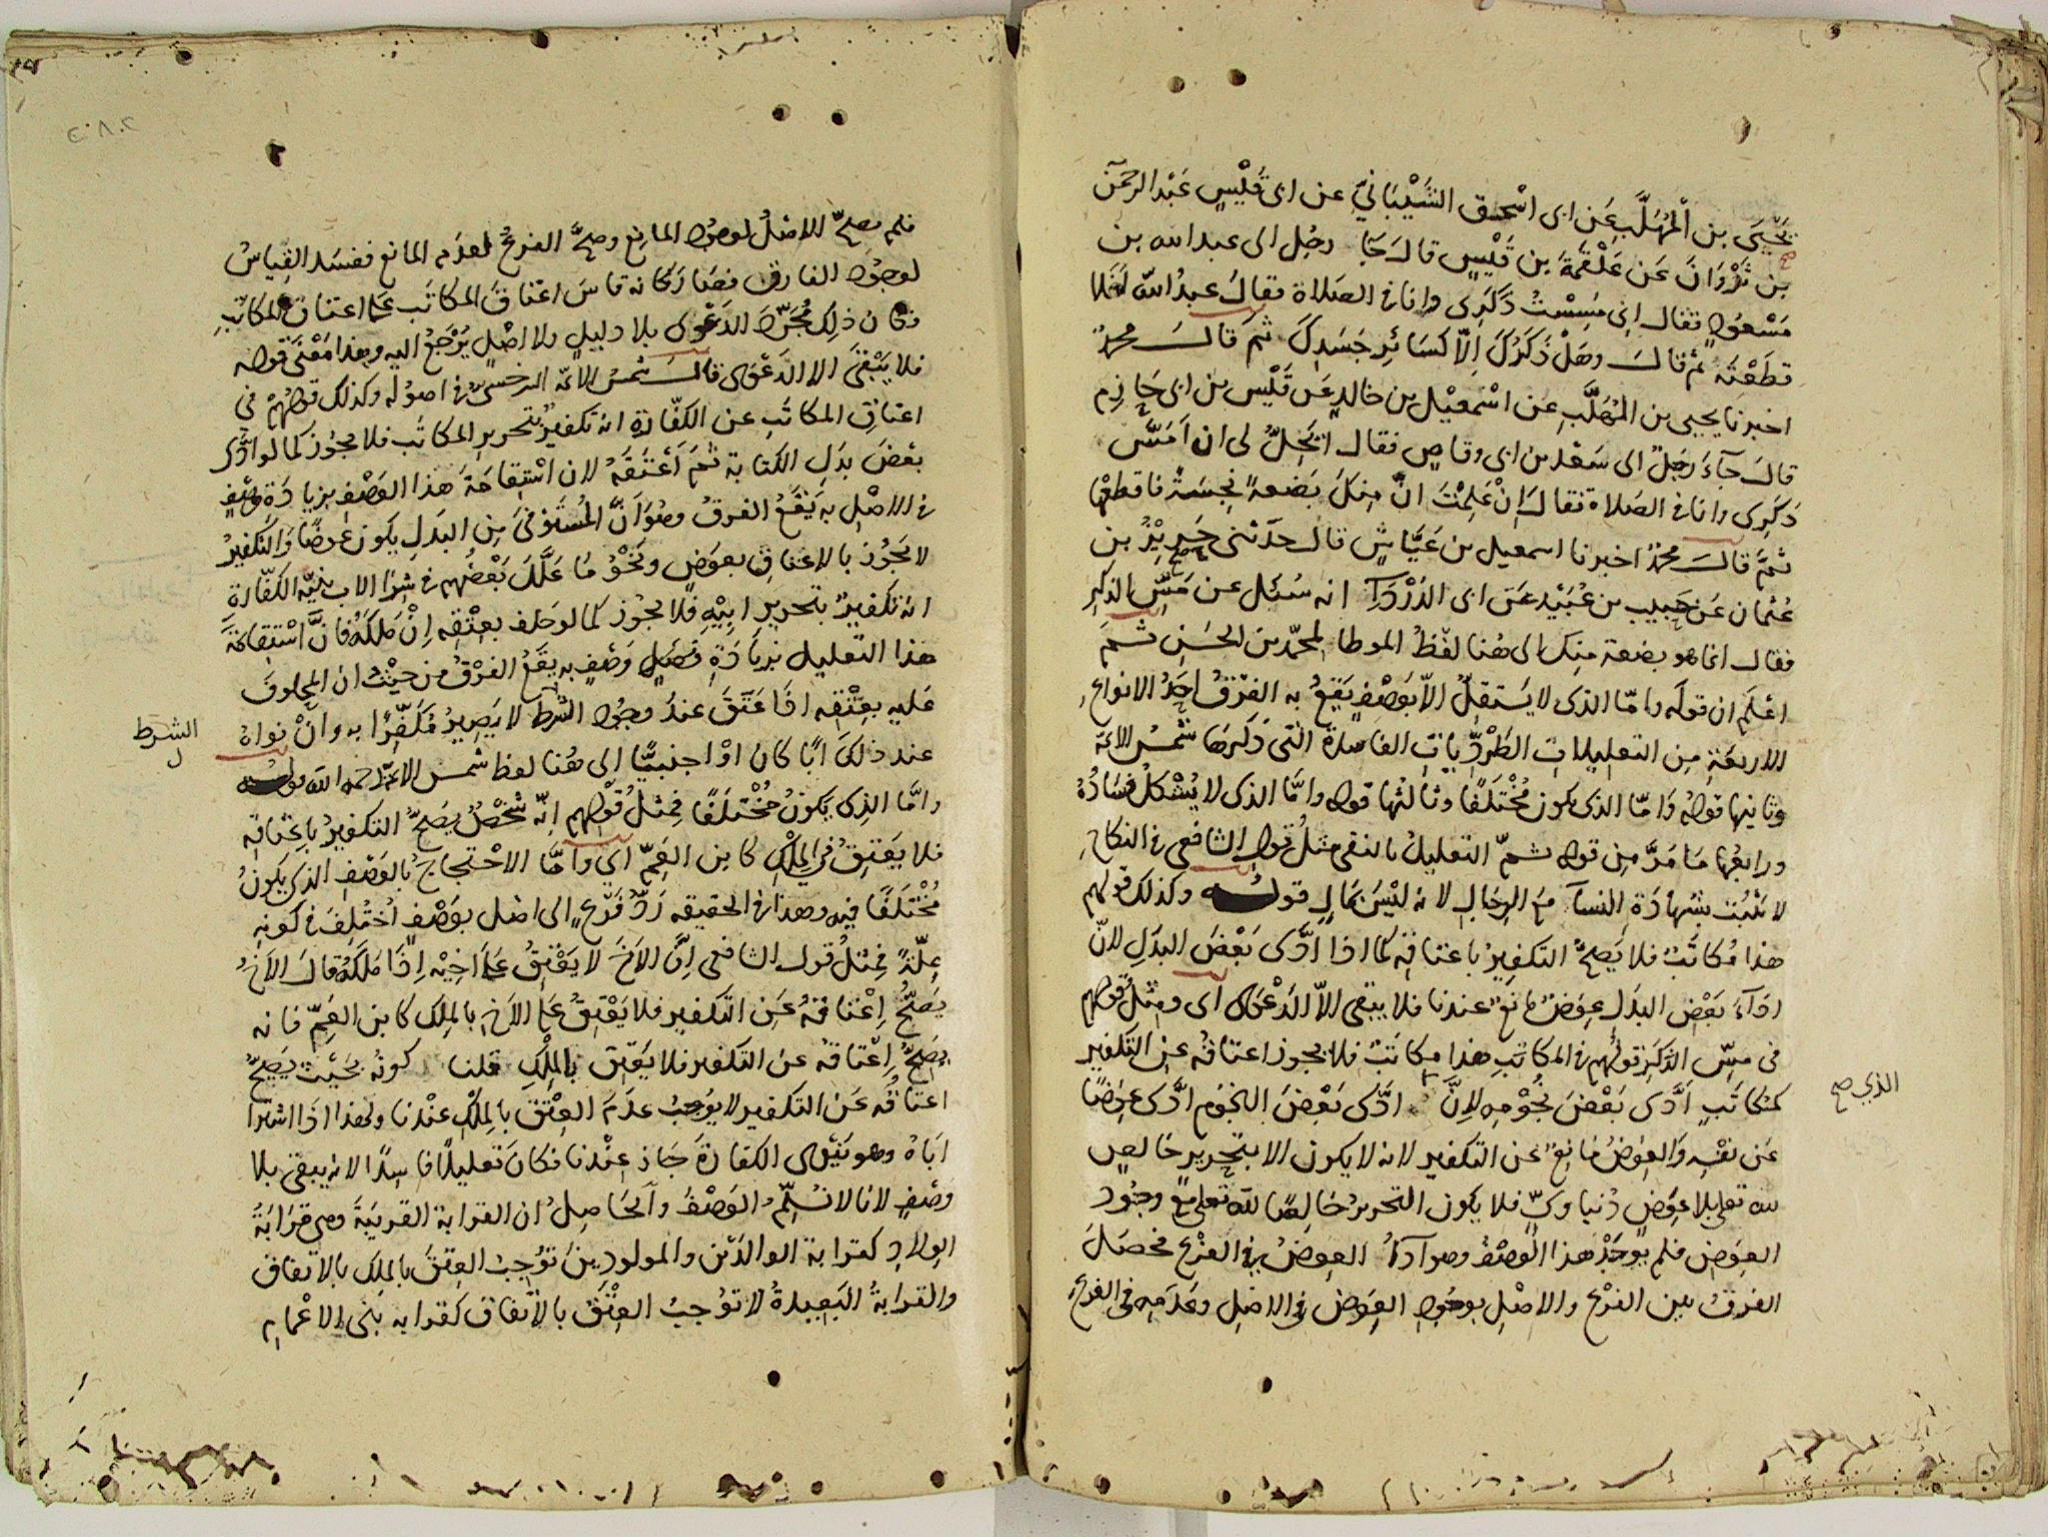 يَحْيَى بن المُهَلَّبِ عَن ابى اسْحٰق الشَّيْبَانِيّ عن ابى قَيْسٍ عَبْد الرحمن
بن ثَرْوَانَ عَن عَلْقَمَةَ بن قَيْسٍ قال جَا رجُل الى عبد الله بن
مَسْعُودٍ فقال انى مَسِسْتُ ذَكَرِى وانا فى الصلاة فقالَ عبدُ اللّه افلا
قطَعْتَه ثم قالَ وهَلْ ذَكَرُكَ اِلّا كسَائِرِ جَسَدِكَ ثمَ قالَ محمدٌ
اخبرنا يحيى بن المُهَلَّبِ عن اسْمعِيْل بن خالدٍ عَن قَيْس بن ابى حَازِم
قالَ جآءَ رَجُلٌ الى سَعْد بن ابى وقاصٍ فقال ايَحِلُّ لى ان اَمَسَّ
ذَكَرِى وانا فى الصَلاة فقالَ اِنْ عَلِمْتَ انَّ مِنكَ بَضعةً نجِسَةً فاقطعْها
ثمَّ قالَ محمدٌ اخبرنا اسمعيل بن عَيَّاشٍ قال حدّثنى حَرِيْزُ بن
عُثمان عَن حَبيب بن عُبَيْد عَن ابى الدَرْدَآ انه سُئل عن مَسِّ الذكرِ
فقال انما هو بضعة منك الى هُنا لفظُ الموطا لمحمّد بن الحسَنِ ثمَ
اعْلَم ان قولَه واما الذى لا يَستقلُّ الّا بوَصْفٍ يَقعُ به الفرْقُ احَدُ الانواعِ
الاربعَةِ مِن التعليلات الطَرْدِّيات الفاسدة التى ذكرهَا شمسُ الائمة
وثانيها قولهُ وَامّا الذى يكون مُخْتَلَفًا وثالثُها قوله وامَّا الذى لا يُشْكلُ فسَادُهُ
ورابعُها مَا مَرَّ مِن قوله ثمّ التعليلُ بالنفى مثلُ قول الشافعى فى النكاحِ
لا يثبُت بشهادَة النسآ معَ الرِجَالِ لانه ليْسَ بمَالٍ قوله وكذلك قولهم
هذا مُكاتَبٌ فلا يَصِحُّ التكفِيرُ باعتاقِه كما اذا ادَّى بَعْضَ البدَلِ لانّ
ادَآءَ بَعْضِ البدَل عِوَضٌ مانعٌ عندنا فلا يبقى الّا الدَعْوى اى ومِثْلُ قولهم
فى مسِّ الذكَرِ قولُهم فى المكاتَبِ هذا مكاتَبٌ فلا يجوز اعتاقُه عن التكفير
كمكاتَبٍ ادَّى بَعْضَ نُجُوْمِهِ لِانَّ ادَّى بَعْضَ النجُوم ادَّى عِوَضًا
الذي صح
عَن نفْسِهِ وَالعِوَضُ مَانِعٌ عن التكفير لانه لا يكون الا بتحريرٍ خالصٍ
لله تعلى بلا عِوَضٍ دُنياوىٍّ فلا يكون التحريرُ خالِصًا للّه تعلى معَ وجُود
العِوَض فلم يُوجَدْ هذا الوصفُ وهو ادَآءُ العِوَضُ فى الفرْع فحصَلَ
الفرقُ بين الفرْع والاصْلِ بوجُودِ العِوَض فى الاصْل وعَدَمِهِ فى الفرعِ
فلم يصحّ الاصْلُ لوجُود المانِع وصحَّ الفرعُ لعدَم المانع ففسَد القِياسُ
لوجُود الفارق فصَار كانه قاسَ اعْتاقَ المكاتَب عَلى اعتاق المكاتَبِ
فكان ذلِك مُجرَّد الدَعْوى بلا دليلٍ ولا اصْلٍ يُرْجَعُ اليه وهذا مَعْنى قوله
فلا يَبْقَى الا الدَعْوى قالَ شمسُ الائمّه السرخسىُّ فى اصوْله وكذلك قولُهمْ فى
اعتاقِ المكاتَبِ عن الكفّارة انه تكفيرٌ بتحريرِ المكاتَب فلا يجُوز كما لو ادَّى
بعْضَ بدَلِ الكتابة ثمَ أعْتَقَهُ لان اسْتِقامَةَ هذا الوَصْفِ بزيادَة وصْفٍ
فى الاصْل به يَقعُ الفرقُ وهُوَ اَنَّ المُسْتَوْفىَ مِن البدَلِ يكون عِوضًا وَالتكفيرُ
لا يَجُوْز بالاعتاق بعِوَضٍ ونَحْوُ مَا عَلَّلَ بَعْضُهم فى شرَا الاب بنيّه الكفّارة
انه تكفيرٌ بتحرير ابيْهِ فلا يجُوز كما لو حَلف بعِتْقِه اِنْ مَلكَهُ فانَّ اسْتِقامَةَ
هذا التعليل بزيَادَةِ فصْلِ وَصْفٍ به يقعُ الفرْقُ من حيْثُ ان المحلوفَ
عَليه بعِتْقِه اذَا عَتَقَ عندَ وجُود الشرط لا يَصِيرُ مُكَفِّرًا به وانْ نواهُ
الشرط
عند ذلكَ ابًا كان اوْ اجنبيًّا الى هُنا لفظ شمس الائمّة رحمه الله قوله
وامَّا الذِى يَكُونُ مُخْتَلَفًا فمِثْلُ قوْلهم انّه شخْصٌ يَصِحُّ التكفيرُ باِعْتاقِه
فلا يَعْتِقُ فى المِلْكِ كابن العَمِّ اي وامَّا الاحْتجاجُ بالوَصْفِ الذى يكونُ
مُخْتَلَفًا فيه وهذا فى الحقيقه رَدُّ فَرْعٍ الى اصْل بوَصْفٍ اُخْتُلِفَ فى كونِه
عِلّةً فمثلُ قول الشافعى اِنَّ الاَخَ لا يَعْتِقُ عَلى اخِيْه اِذَا مَلَكَهُ قالَ الاَخُ
يَصِحُّ اِعْتاقهُ عَن التكفير فلا يَعْتِقُ عَلى الاَخ بالمِلك كابن العَمِّ فانه
يَصِحُّ اِعْتاقه عن التكفير فلا يَعْتِق بالمِلْكِ قلنا كونُه بحَيْث يَصِحُّ
اعتاقُه عَن التكفير لا يُوجِبُ عدَمَ العِتْقِ بالمِلْكِ عنْدنا ولهذا اذَا اشترَا
ابَاهُ وهو يَنْوِى الكفارَة جَازَ عنْدنا فكان تعليلًا فاسِدًا لانه يبقى بلا
وصْفٍ لانا لا نسَلِّمُ الوَصْفَ وَالحَاصِلُ ان القرابة القريبَةَ وهى قَرَابَةُ
الوِلادِ كقرابة الوالدَيْن والمولودِينَ تُوْجِبُ العِتقَ بالمِلكِ بالاتفاق
والقرابةُ البَعِيدةُ لا تُوْجبُ العِتْقَ بالاتّفاق كقرابه بَنى الاعْمامِ